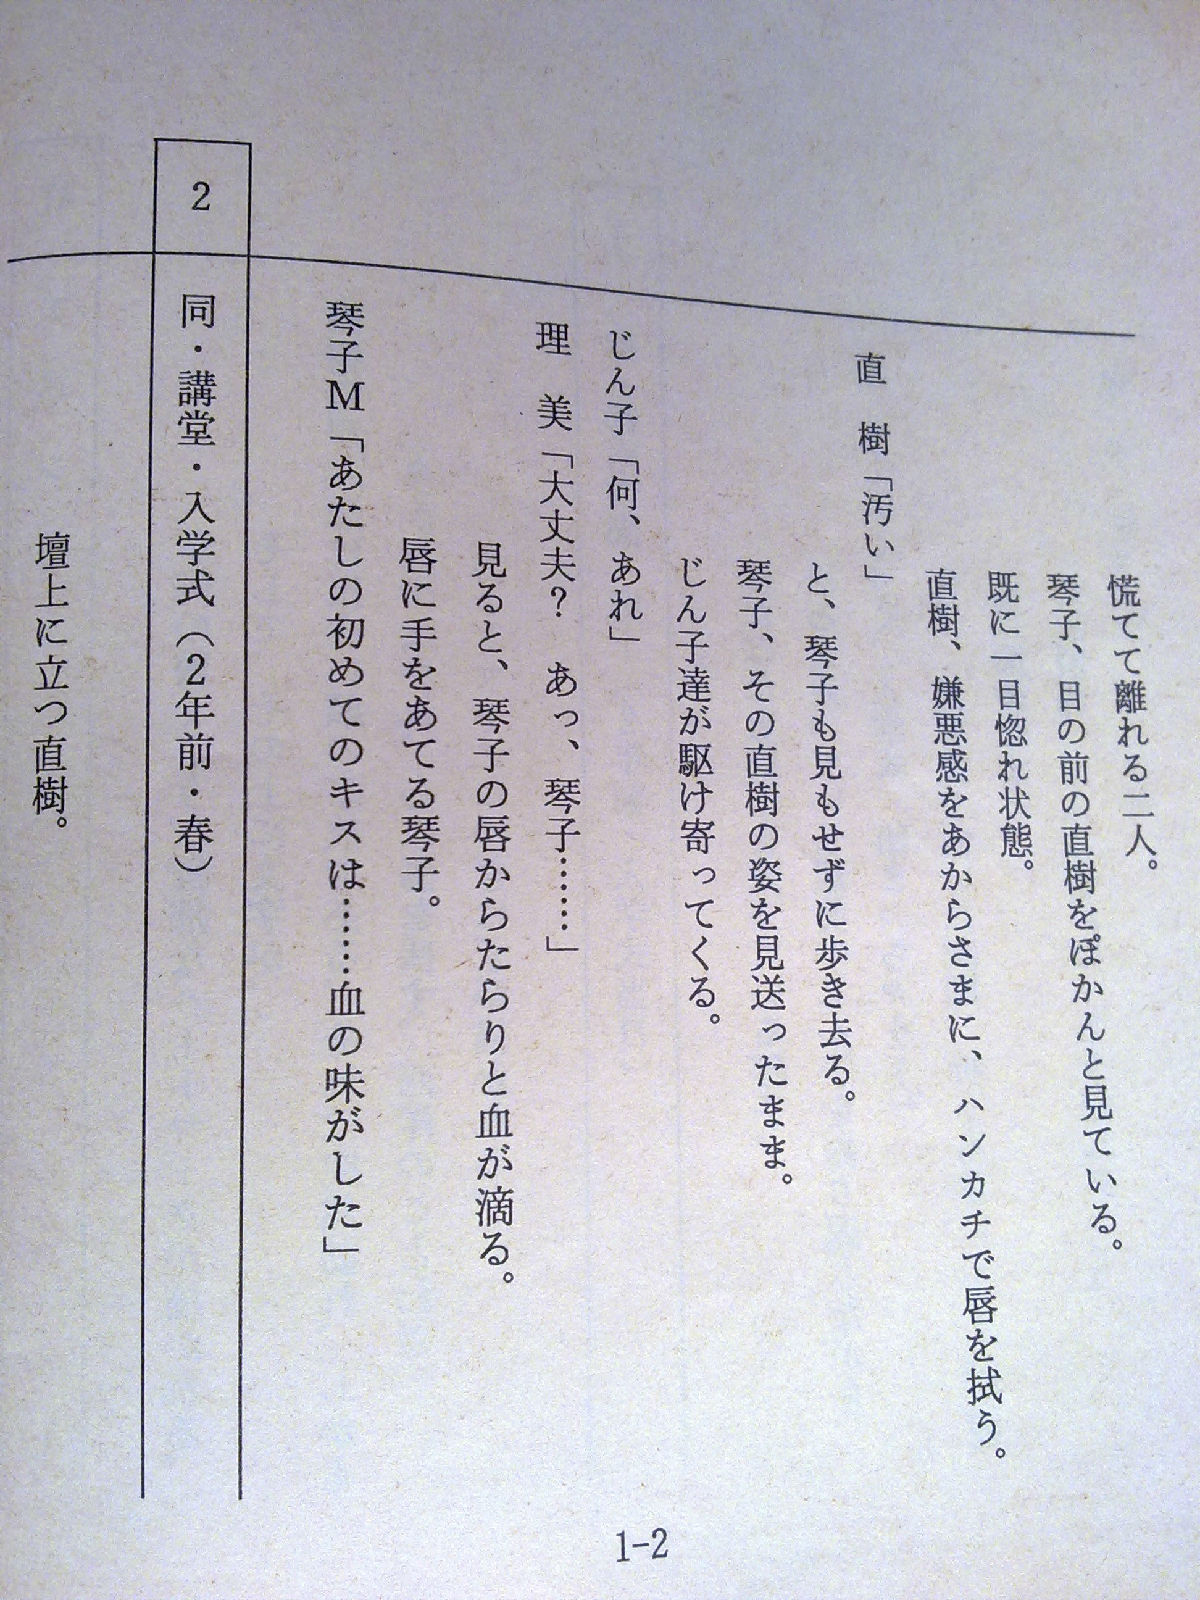 慌てて離れる二人。
琴子、目の前の直樹をぽかんと見ている。
既に一目惚れ状態。
直樹、嫌悪感をあからさまに、ハンカチで唇を拭う。
直　樹「汚い」
と、琴子も見もせずに歩き去る。
琴子、その直樹の姿を見送ったまま。
じん子達が駆け寄ってくる。
じん子「何、あれ」
理　美「大丈夫？　あっ、琴子……」
見ると、琴子の唇からたらりと血が滴る。
唇に手をあてる琴子。
琴子Ｍ「あたしの初めてのキスは……血の味がした」
2　同・講堂・入学式（２年前・春）
壇上に立つ直樹。
1-2